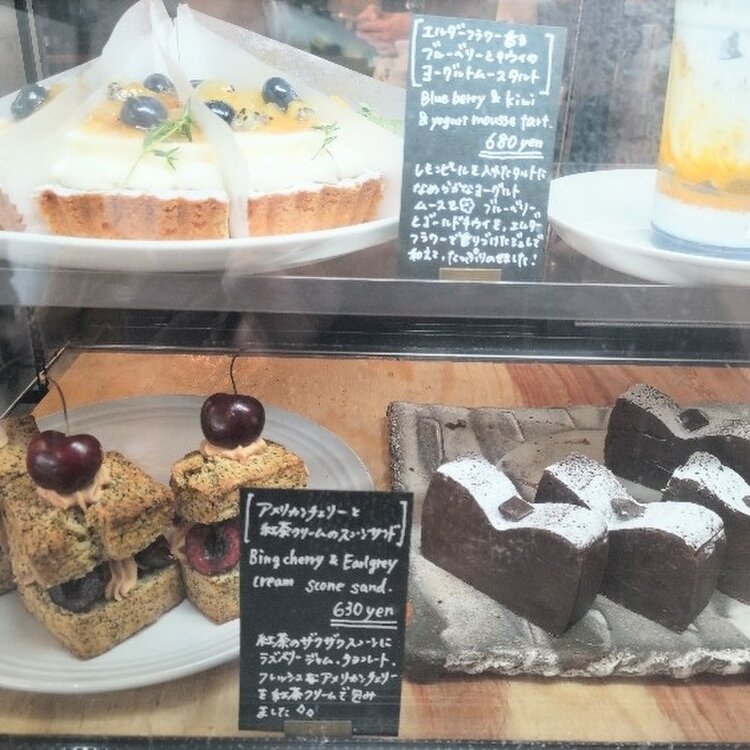 エルダーフラワー香る
ブルーベリーとキウイの
ヨーグルトムースタルト
Blue berry & kiwi
& yogurt mousse tart.
680 yen
レモンピールを入れたタルトに
なめらかなヨーグルト
ムースを ブルーベリー
とゴールドキウイを、エルダー
フラワーで香りづけたジュレで
和えて、たっぷりのせました!
アメリカンチェリーと
紅茶クリームのスコーンサンド
Bing cherry & Earlgrey
cream scone sand.
630 yen
紅茶のザクザクスコーンに
ラズベリージャム、チョコレート、
フレッシュなアメリカンチェリー
を紅茶クリームで包み
ました